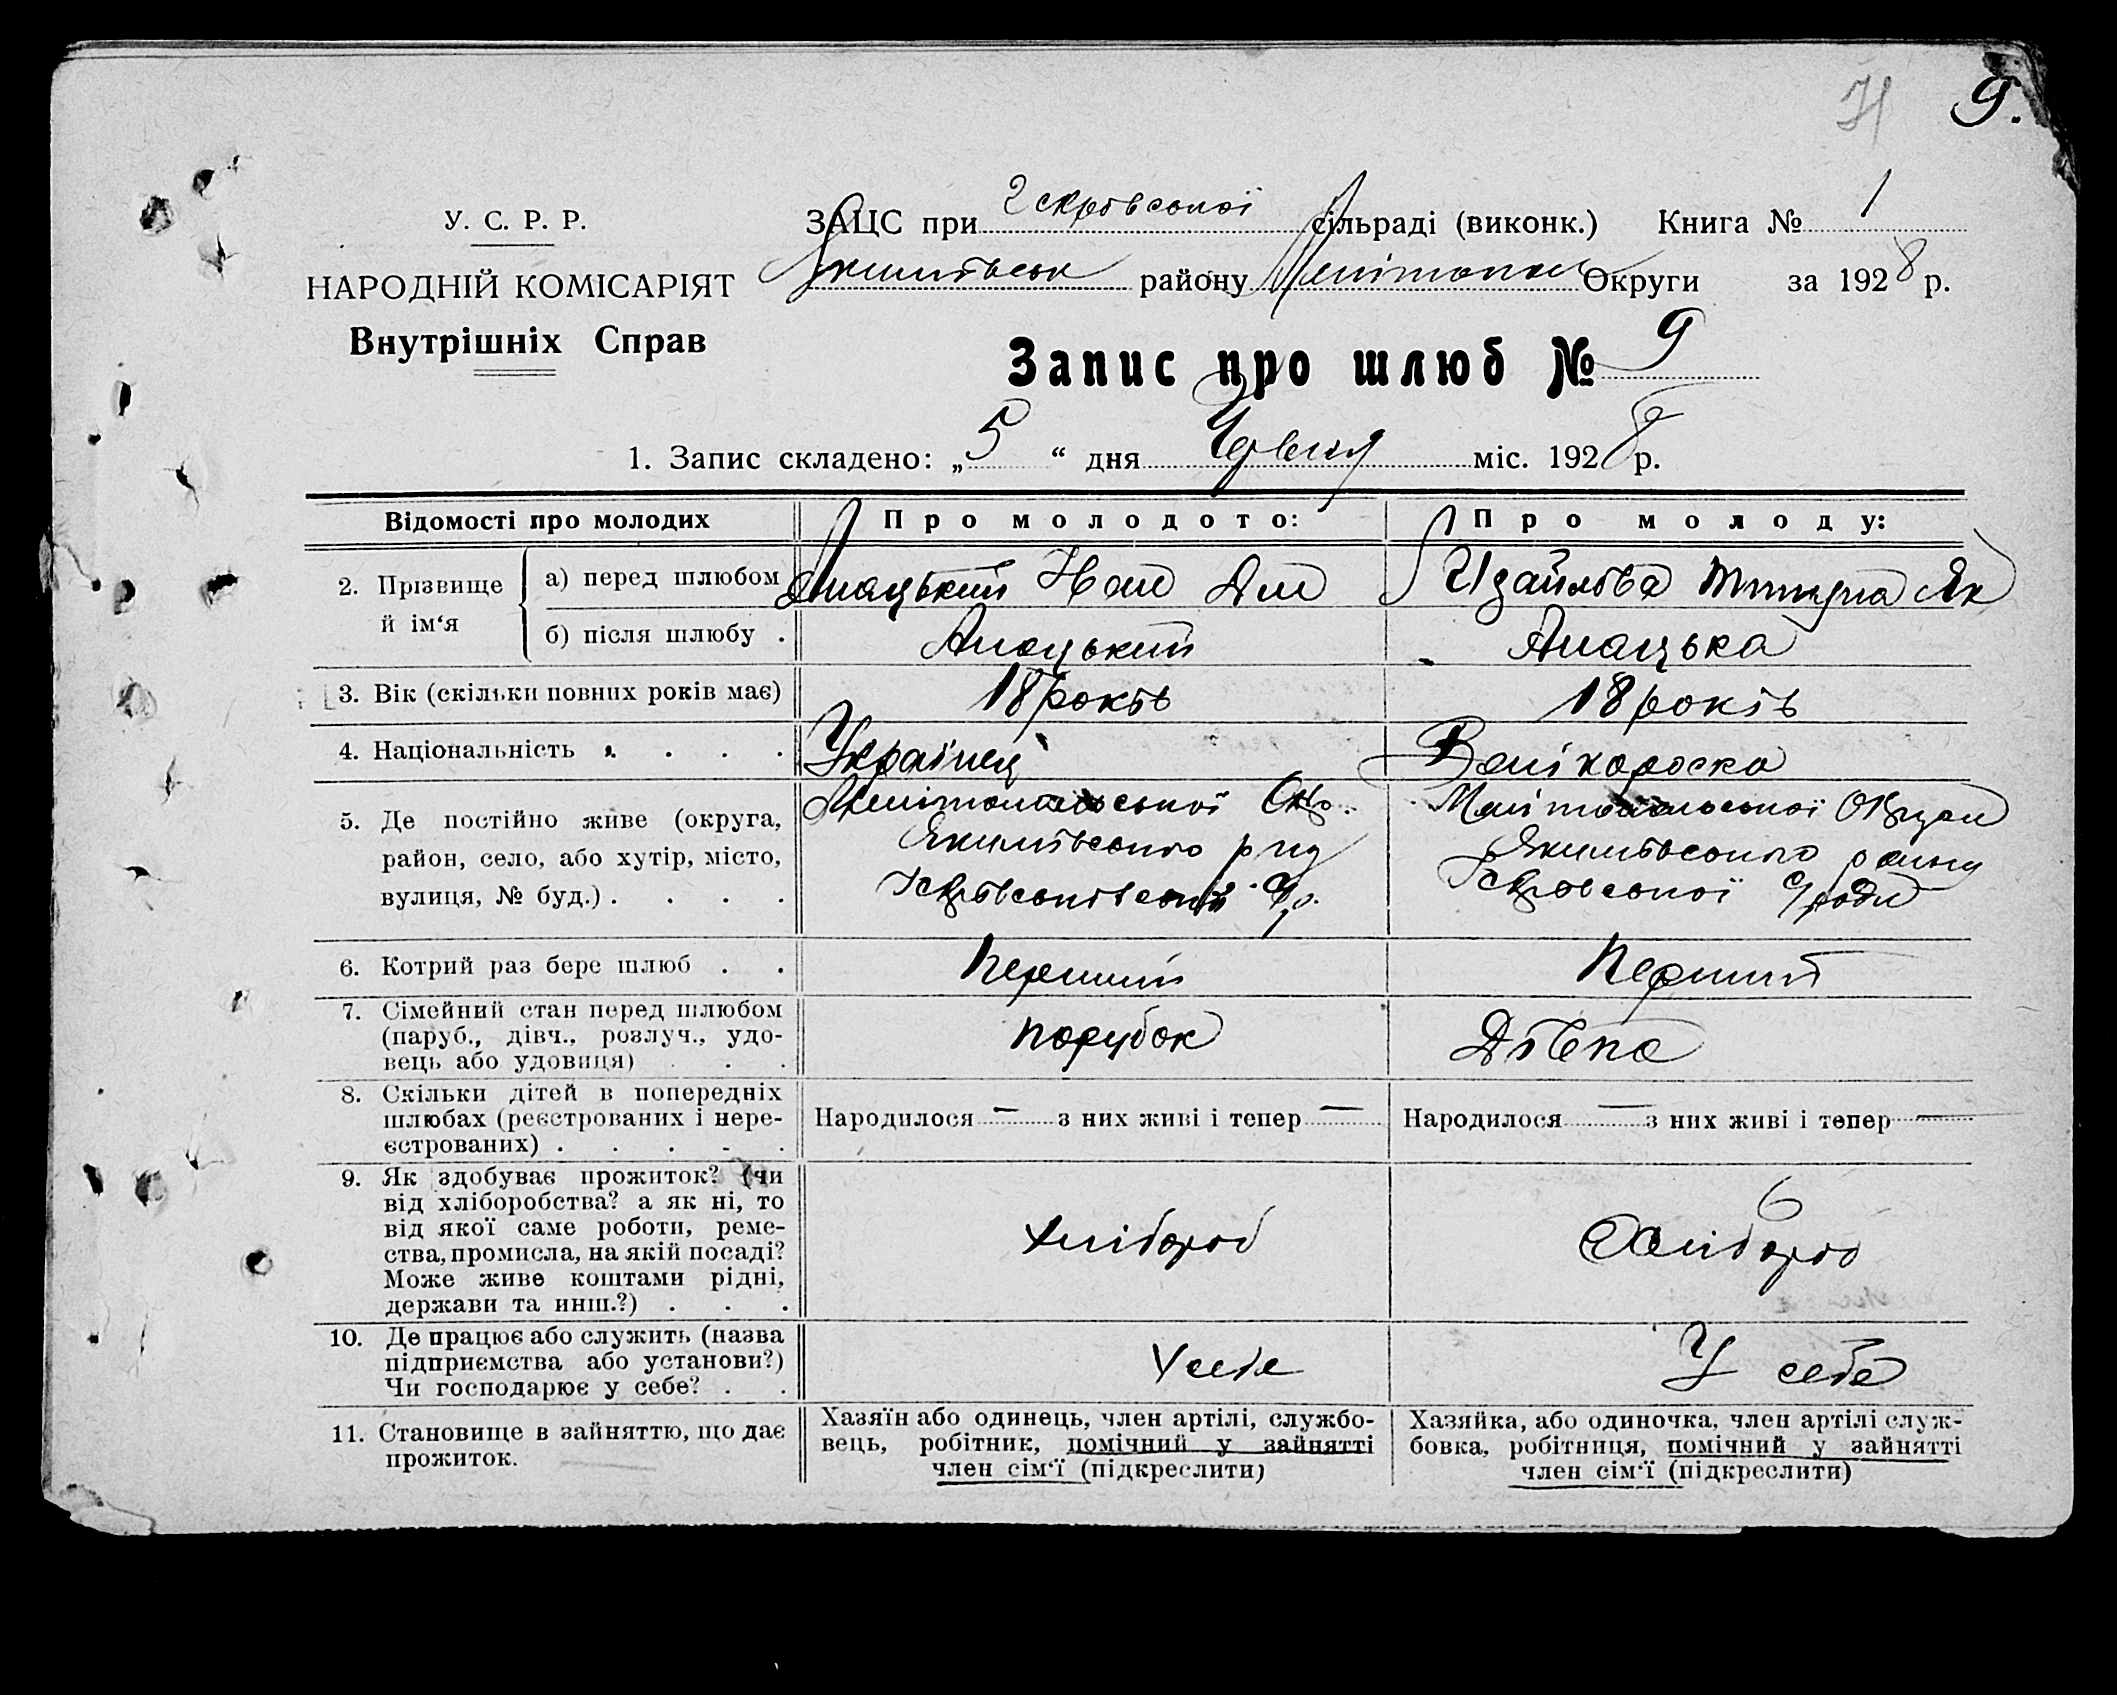 9.
У. С. Р. Р.
НАРОДНІЙ КОМІСАРІЯТ
Внутрішніх Справ
ЗАЦС при сільраді (виконк.) Книга № 1
району Округи за 1928 р.
Запис про шлюб № 9
1. Запис складено: „ 5 “ дня Червня міс. 1928 р.
Відомості про молодих
Про молодого:
Про молоду:
2. Прізвище й ім‘я
а) перед шлюбом
б) після шлюбу .
Ізайлова Як
3. Вік (скільки повних років має)
18 років
18 років
4. Національність . . . .
Українець
Велікороска
5. Де постійно живе (округа,
район, село, або хутір, місто,
вулиця, № буд.) . . . .
Мелітопольської Окр.
Якимівського р-ну
Мелітопольської Округи
Якимівського району
6. Котрий раз бере шлюб . .
Перший
Перший
7. Сімейний стан перед шлюбом
(паруб., дівч., розлуч., удо-
вець або удовиця) . . .
Парубок
Дівка
8. Скільки дітей в попередніх
шлюбах (реєстрованих і нере-
єстрованих) . . . . .
Народилося — з них живі і тепер —
Народилося — з них живі і тепер —
9. Як здобуває прожиток? (чи
від хліборобства? а як ні, то
від якої саме роботи, реме-
ства, промисла, на якій посаді?
Може живе коштами рідні,
держави та инш.?) . . .
Хлібороб
Хлібороб
10. Де працює або служить (назва
підприємства або установи?)
Чи господарює у себе? . .
У себе
У себе
11. Становище в зайняттю, що дає
прожиток.
Хазяїн або одинець, член артілі, службо-
вець, робітник, помічний у зайнятті
член сім‘ї (підкреслити)
Хазяйка, або одиночка, член артілі служ-
бовка, робітниця, помічний у зайнятті
член сім‘ї (підкреслити)